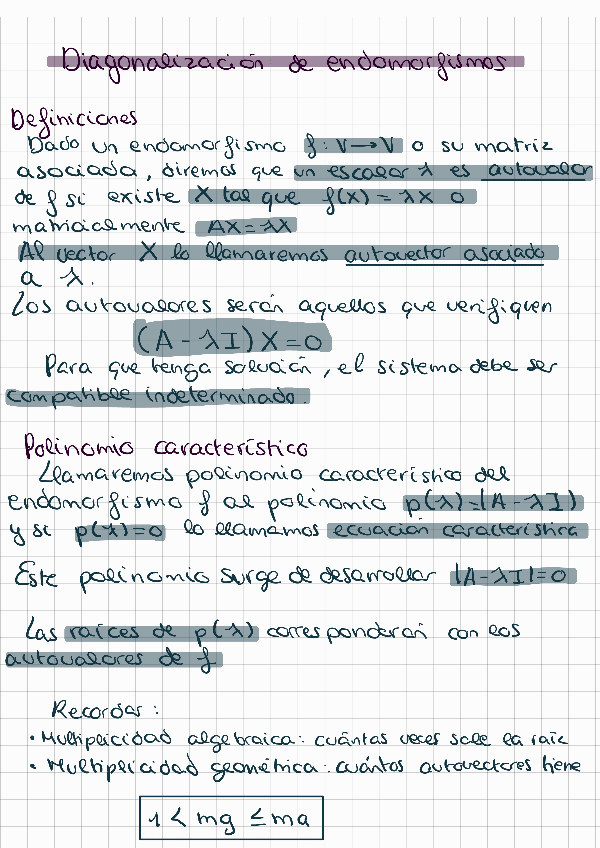 Diagonalización de endomorfismos
Definiciones
Dado un endomorfismo f: V→V o su matriz
asociada, diremos que un escalar λ es autovalor
de f si existe X tal que f(x) = λx o
matricialmente AX = λX
Al vector X lo llamaremos autovector asociado
a λ.
Los autovalores serán aquellos que verifiquen
(A - λI) X = 0
Para que tenga solución, el sistema debe ser
compatible indeterminado.
Polinomio característico
Llamaremos polinomio característico del
endomorfismo f al polinomio p(λ)=|A-λI|
y si p(λ)=0 lo llamamos ecuación característica
Este polinomio surge de desarrollar |A-λI|=0
Las raíces de p(λ) corresponderán con los
autovalores de f
Recordar:
• Multiplicidad algebraica: cuántas veces sale la raíz
• Multiplicidad geométrica: cuántos autovectores tiene
1 < mg ≤ ma